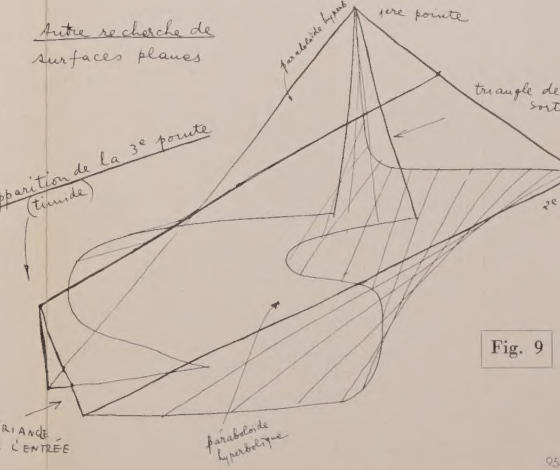 Autre recherche de
surfaces planes
paraboloïde hyperb
1ere pointe
triangle de
sort
apparition de la 3e pointe
(timide)
2e
Fig. 9
RIANGE
L'ENTRÉE
paraboloïde
hyperbolique